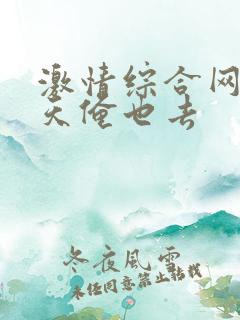 激情综合网
天俺也去
冬夜风雪
未经同意禁止转载